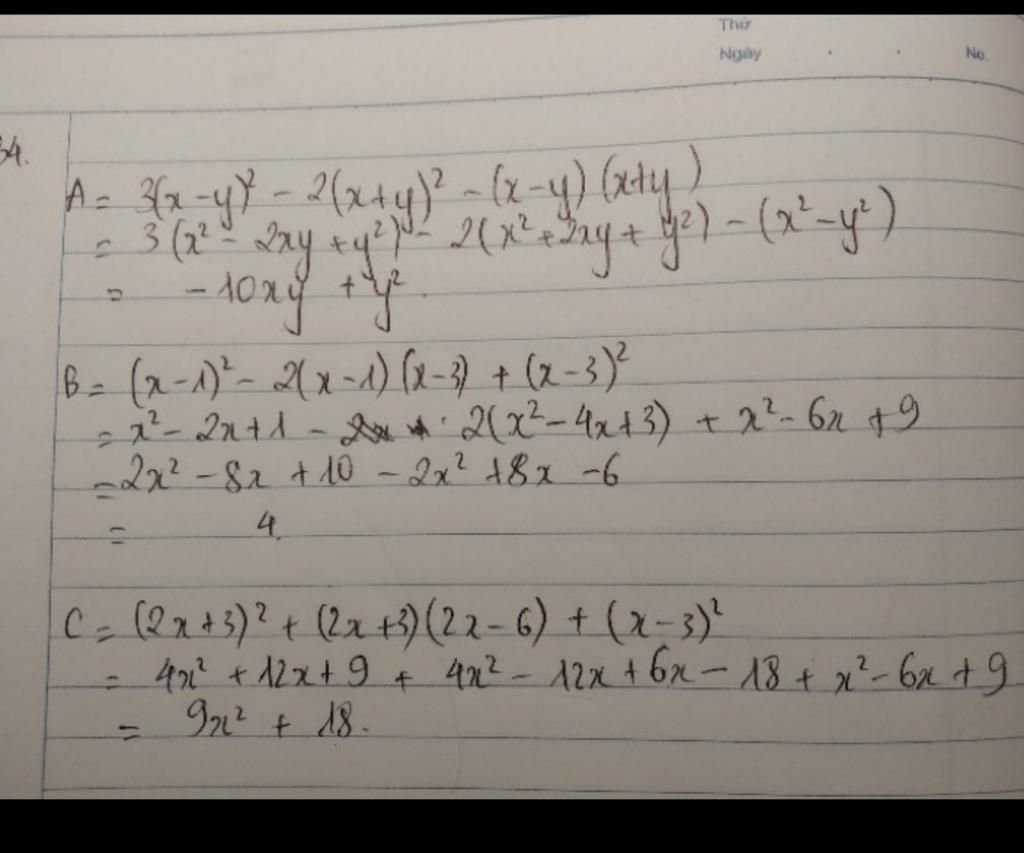 Thứ
Ngày . . No.
34.
A = 3(x-y)² - 2(x+y)² - (x-y)(x+y)
= 3(x² - 2xy + y²) - 2(x² + 2xy + y²) - (x² - y²)
= -10xy + y².
B = (x-1)² - 2(x-1)(x-3) + (x-3)²
= x² - 2x + 1 - 2(x² - 4x + 3) + x² - 6x + 9
= 2x² - 8x + 10 - 2x² + 8x - 6
= 4.
C = (2x+3)² + (2x+3)(2x-6) + (x-3)²
= 4x² + 12x + 9 + 4x² - 12x + 6x - 18 + x² - 6x + 9
= 9x² + 18.